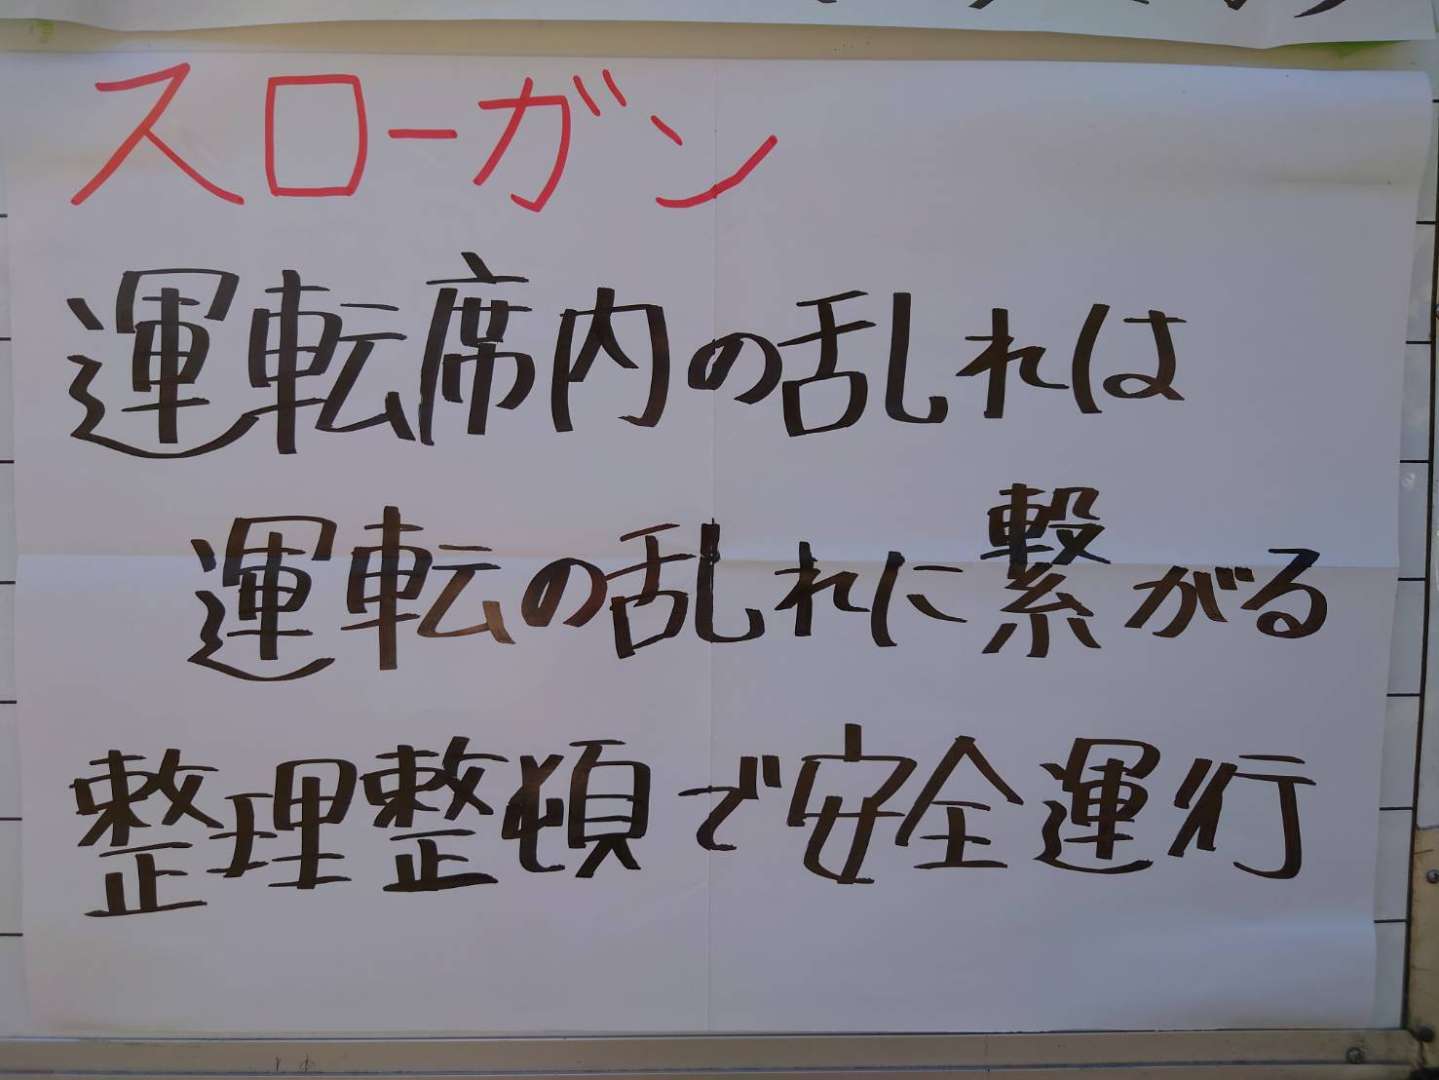 スローガン
運転席内の乱れは
運転の乱れに繋がる
整理整頓で安全運行